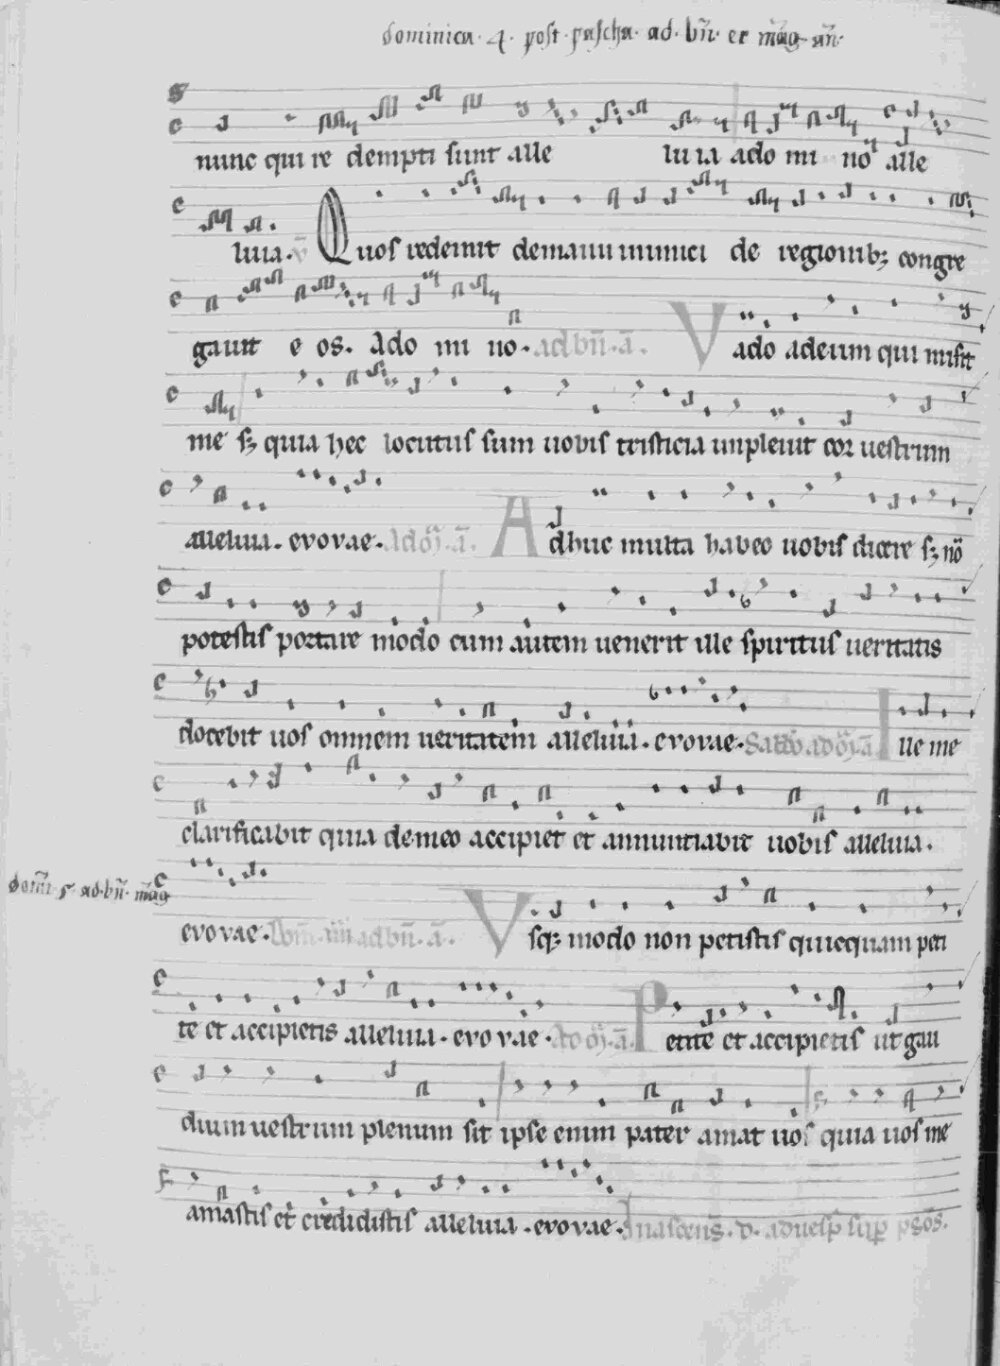 dominica · 4 · post · pascha · ad · bn̄ · et mag̅ an̄ ·
nunc qui re dempti sunt alle lu ia ado mi no alle
luia · v̄ Quos redemit demanu inimici de regionib; congre
gauit e os . Ado mi no · ad bn̄ · a̅ . Vado adeum qui misit
me s; quia hec locutus sum uobis tristicia impleuit cor uestrum
alleluia · evovae · A dhuc multa habeo uobis dicere s; nō
potestis portare modo cum autem uenerit ille spiritus ueritatis
docebit uos omnem ueritatem alleluia · evovae · Ille me
clarificabit quia de meo accipiet et annuntiabit uobis alleluia ·
dom̅ 5 · ad · bn̄ · mag̅
evovae · Dom̅ · iiii ad bn̄ · a̅ · Vsq; modo non petistis quicquam peti
te et accipietis alleluia · evovae · Petite et accipietis ut gau
dium uestrum plenum sit ipse enim pater amat uos quia uos me
amastis et credidistis alleluia · evovae · In ascens̅ · d̅ · ad uesp̅ sup̅ psōs .